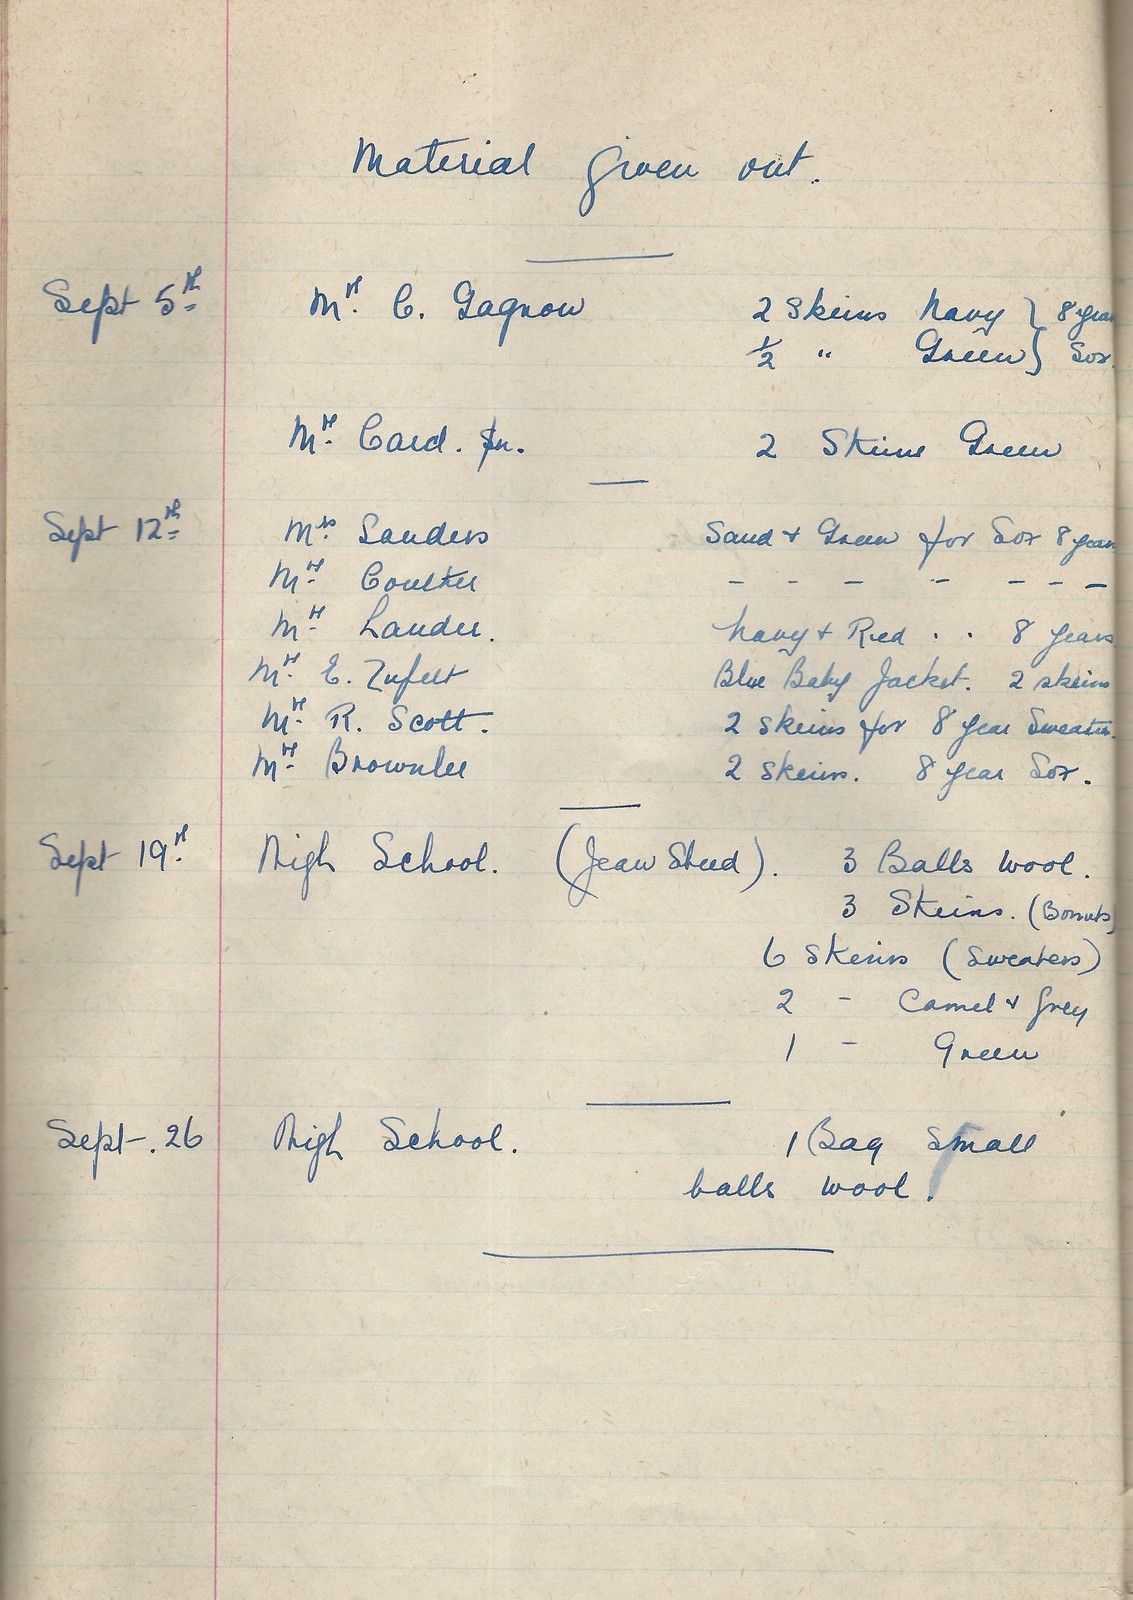 Material given out.
Sept 5th Mrs. C. Gagnon 2 Skeins Navy } 8 year
1/2 " Green } Sox.
Mrs. Card. Sn. 2 Skeins Green
Sept 12th Mrs. Sanders Sand + Green for Sox 8 years
Mrs. Coulter - - - - - - -
Mrs. Lander. Navy + Red . . 8 years
Mrs. E. Zufelt Blue Baby Jacket. 2 skeins
Mrs. R. Scott. 2 skeins for 8 year Sweater.
Mrs. Brownlee 2 skeins. 8 year Sox.
Sept 19th High School. (Jean Steed). 3 Balls wool.
3 Skeins. (Bonnets)
6 Skeins (Sweaters)
2 - Camel + Grey
1 - Green
Sept. 26 High School. 1 Bag Small
balls wool.